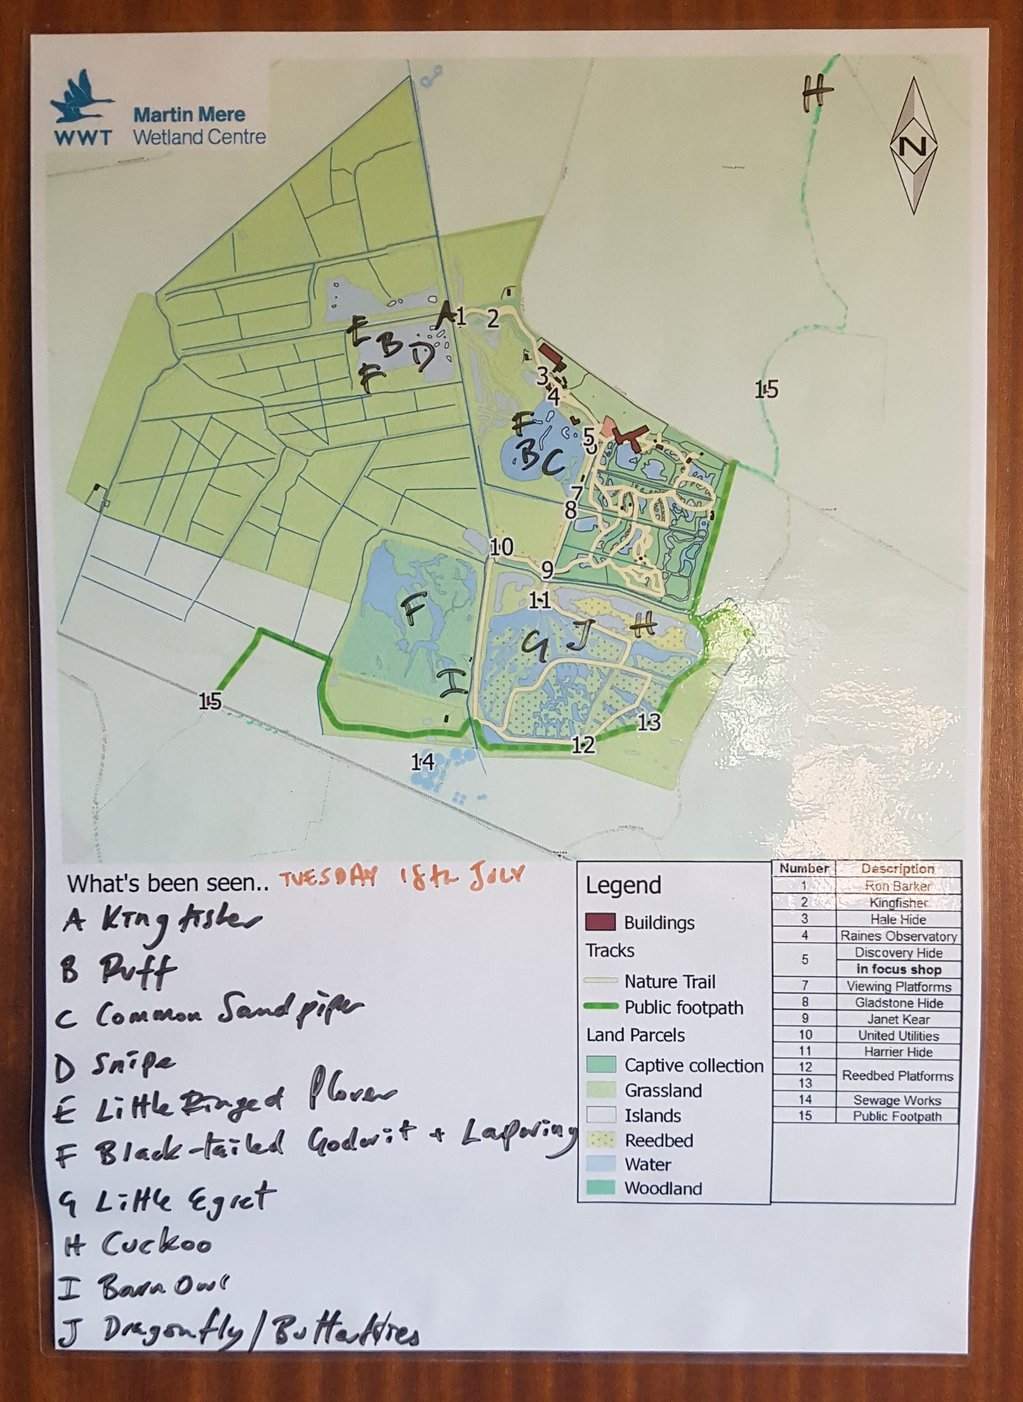 WWT
Martin Mere
Wetland Centre
N
H
15
A 1 2
E B D
F
3
4
F
B C
5
7
8
10
9
11
F
G J H
I
15
13
12
14
What's been seen.. TUESDAY 18th JULY
A Kingfisher
B Ruff
C Common Sandpiper
D Snipe
E Little Ringed Plover
F Black-tailed Godwit + Lapwing
G Little Egret
H Cuckoo
I Barn Owl
J Dragonfly/Butterflies
Legend
Buildings
Tracks
Nature Trail
Public footpath
Land Parcels
Captive collection
Grassland
Islands
Reedbed
Water
Woodland
Number Description
1 Ron Barker
2 Kingfisher
3 Hale Hide
4 Raines Observatory
5 Discovery Hide
in focus shop
7 Viewing Platforms
8 Gladstone Hide
9 Janet Kear
10 United Utilities
11 Harrier Hide
12 Reedbed Platforms
13
14 Sewage Works
15 Public Footpath